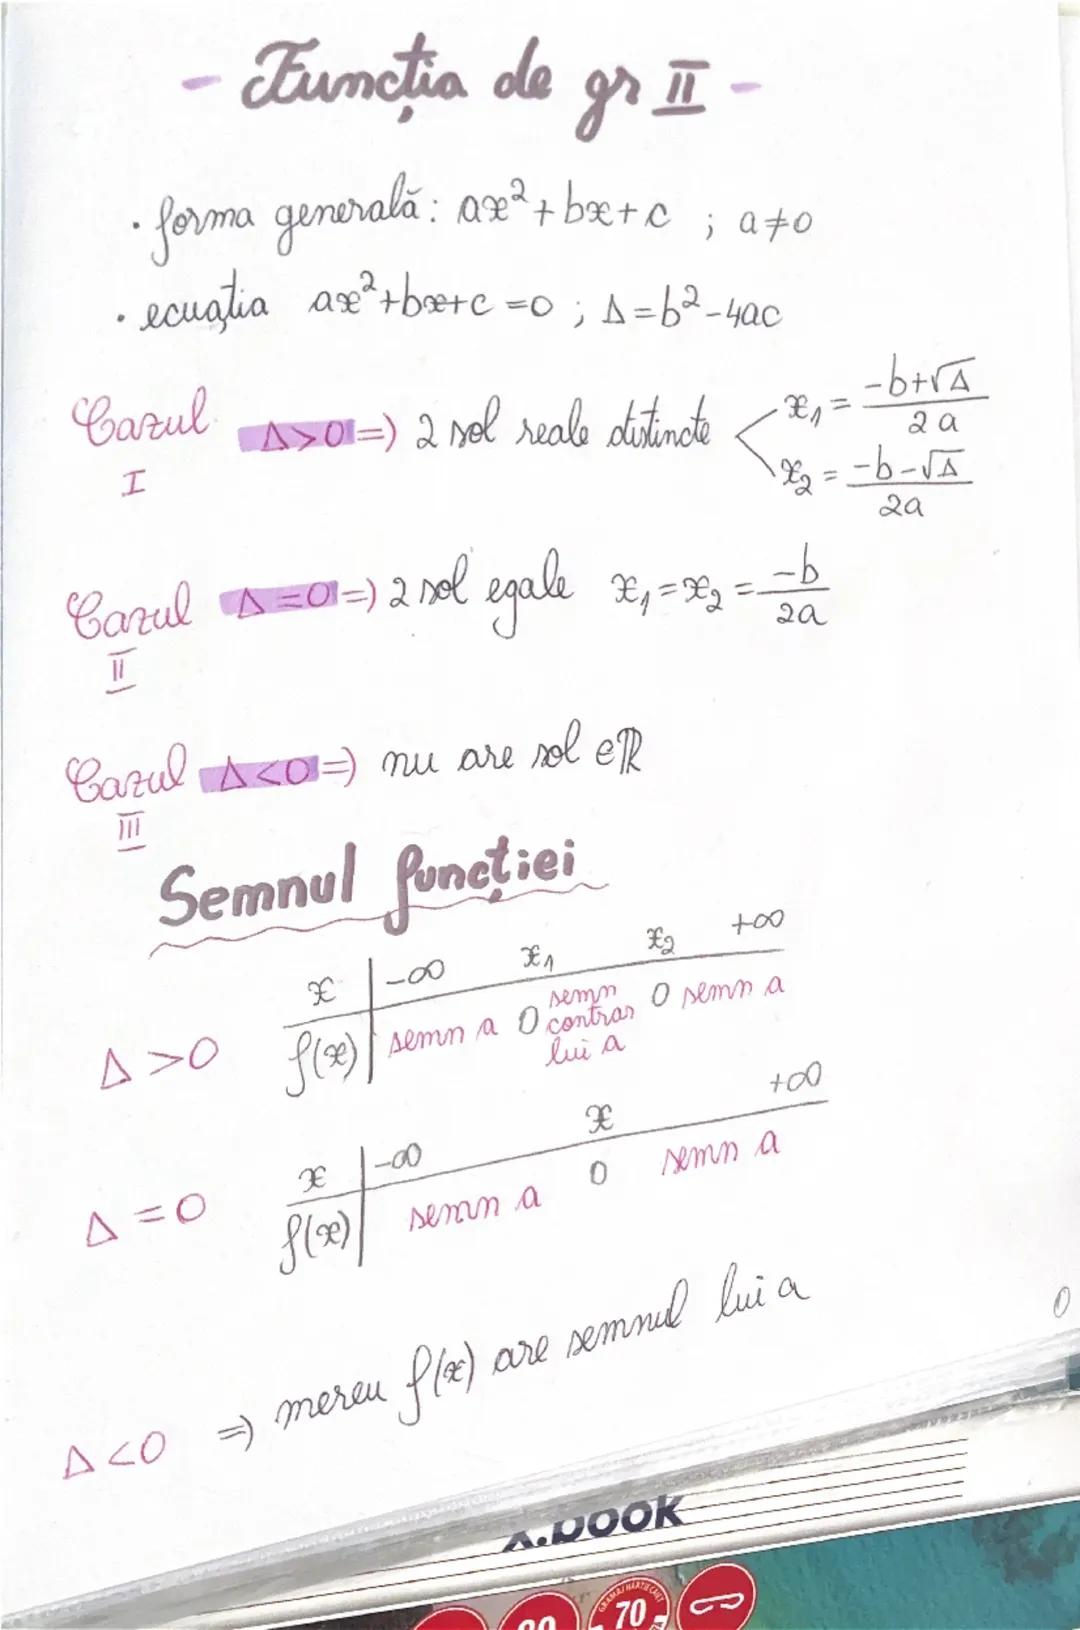 - Funcția de gr II -
· forma generală: ax²+bx+c ; a≠0
· ecuația ax²+bx+c =0 ; Δ=b²-4ac
Cazul I Δ>0 =) 2 sol reale distincte x₁ = (-b+√Δ)/2a
x₂ = (-b-√Δ)/2a
Cazul II Δ=0 =) 2 sol egale x₁=x₂ = -b/2a
Cazul III Δ<0 =) nu are sol ∈ℝ
Semnul funcției
Δ>0
x | -∞ x₁ x₂ +∞
f(x) | semn a 0 semn contrar lui a 0 semn a
Δ=0
x | -∞ x +∞
f(x) | semn a 0 semn a
Δ<0 =) mereu f(x) are semnul lui a
x.book
70